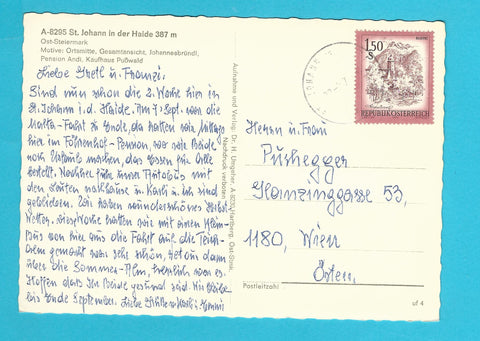 A-8295 St. Johann in der Haide 387 m
Ost-Steiermark
Motive: Ortsmitte, Gesamtansicht, Johannesbründl,
Pension Andi, Kaufhaus Pußwald
Liebe Gretl u. Franzi.
Sind nun schon die 2. Woche hier in
St. Johann i. d. Haide. Am 7. Sept. war die
Fahrt zu Ende, da hatten wir Mittag
hier im Pension, wo wir Beide
machen, das Essen für Alle
bestellt. Nachher fuhr unser Autobus mit
den Leuten nachhause u. Karli u. ich sind
geblieben. Wir haben wunderschönes Herbst
Wetter, vorige Woche hatten wir mit einem
Bus von hier aus die Fahrt auf die Teich-
alm gemacht war sehr schön, tet aus dann
über die Sommer-Alm, herrlich war es.
Hoffen dass Ihr Beide gesund seid. Wir bleiben
bis Ende September. Liebe Karli u.
Aufnahme und Verlag: Dr. H. Umgeher, A 8230 Hartberg, Ost-Stmk.
Nachdruck verboten.
1.50
S
REPUBLIK ÖSTERREICH
ST. JOHANN
Herrn u. Frau
Pushegger
Hamzinggasse 53,
1180, Wien
Östen.
Postleitzahl
uf 4